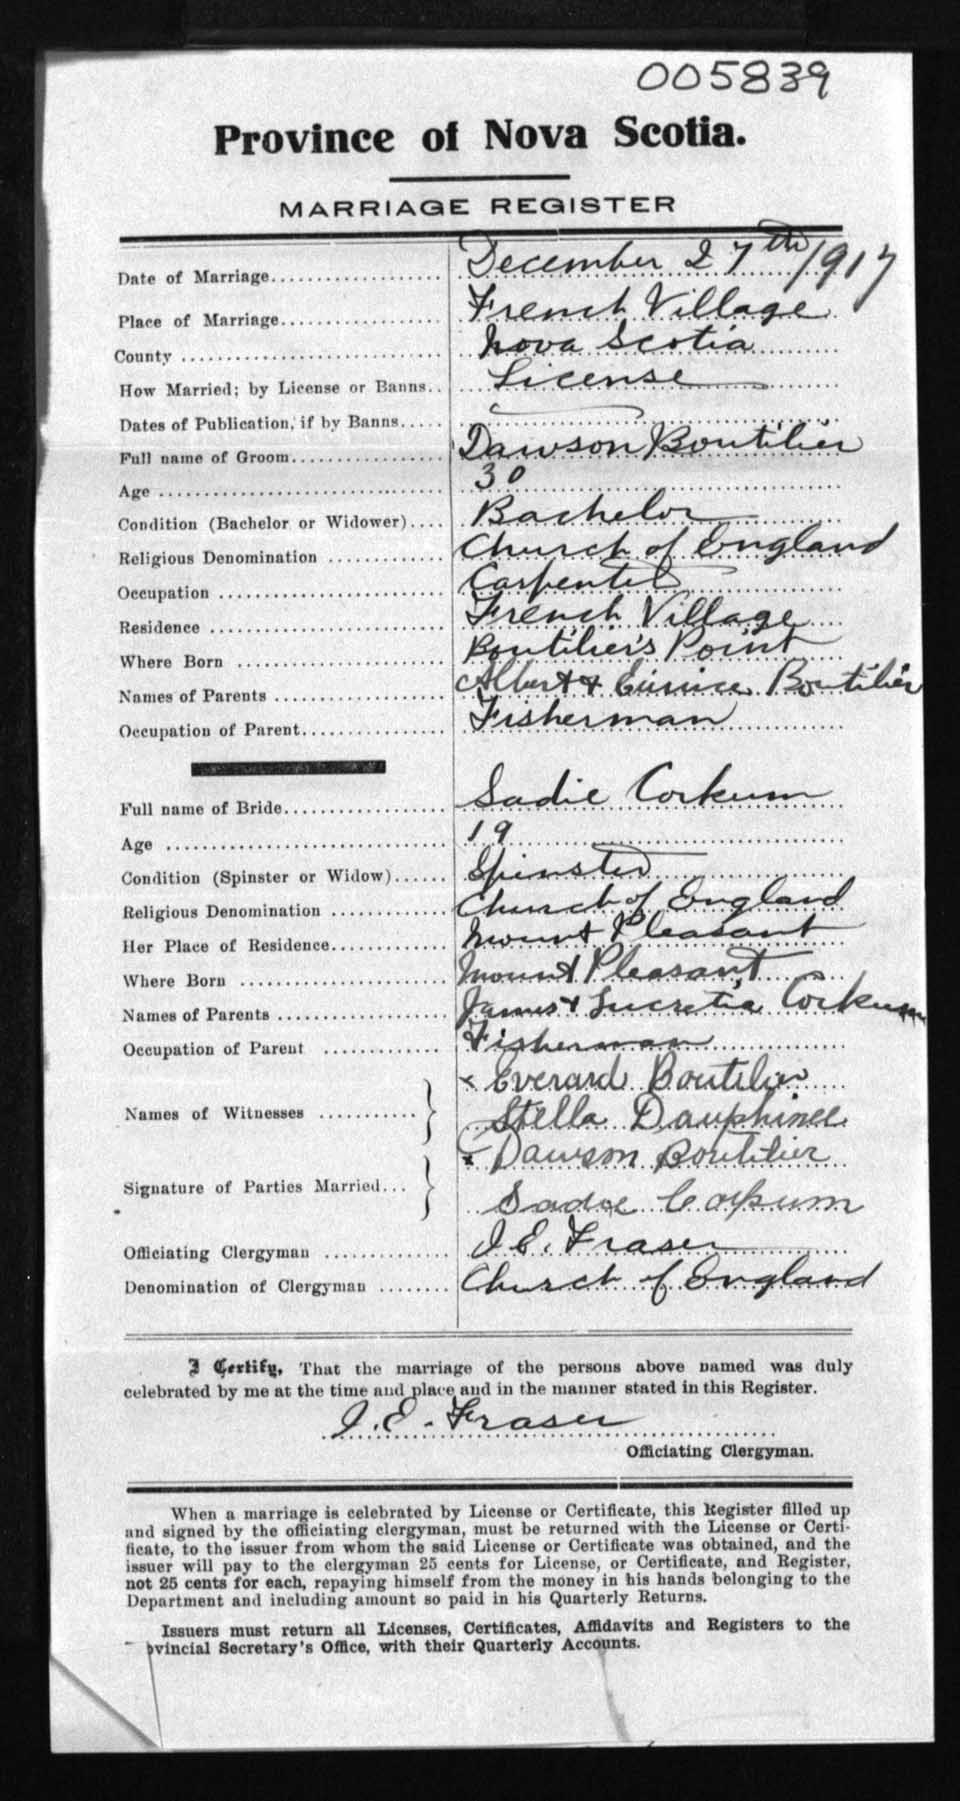 005839
Province of Nova Scotia.
MARRIAGE REGISTER
Date of Marriage.................. December 27th/1917
Place of Marriage.................. French Village
County .................. Nova Scotia
How Married; by License or Banns.. License
Dates of Publication, if by Banns.....
Full name of Groom.................. Dawson Boutilier
Age .................. 30
Condition (Bachelor or Widower).... Bachelor
Religious Denomination ............ Church of England
Occupation .................. Carpenter
Residence .................. French Village
Where Born .................. Boutilier's Point
Names of Parents .................. Albert & Eunice Boutilier
Occupation of Parent.................. Fisherman
Full name of Bride.................. Sadie Corkum
Age .................. 19
Condition (Spinster or Widow)...... Spinster
Religious Denomination ............ Church of England
Her Place of Residence............. Mount Pleasant
Where Born .................. Mount Pleasant
Names of Parents .................. James & Lucretia Corkum
Occupation of Parent ............ Fisherman
x Everard Boutilier
Names of Witnesses ...........
Stella Dauphinee
x Dawson Boutilier
Signature of Parties Married...
Sadie Corkum
Officiating Clergyman ............ J. E. Fraser
Denomination of Clergyman ........ Church of England
I Certify, That the marriage of the persons above named was duly
celebrated by me at the time and place and in the manner stated in this Register.
J. E. Fraser
Officiating Clergyman.
When a marriage is celebrated by License or Certificate, this Register filled up
and signed by the officiating clergyman, must be returned with the License or Certi-
ficate, to the issuer from whom the said License or Certificate was obtained, and the
issuer will pay to the clergyman 25 cents for License, or Certificate, and Register,
not 25 cents for each, repaying himself from the money in his hands belonging to the
Department and including amount so paid in his Quarterly Returns.
Issuers must return all Licenses, Certificates, Affidavits and Registers to the
ovincial Secretary's Office, with their Quarterly Accounts.